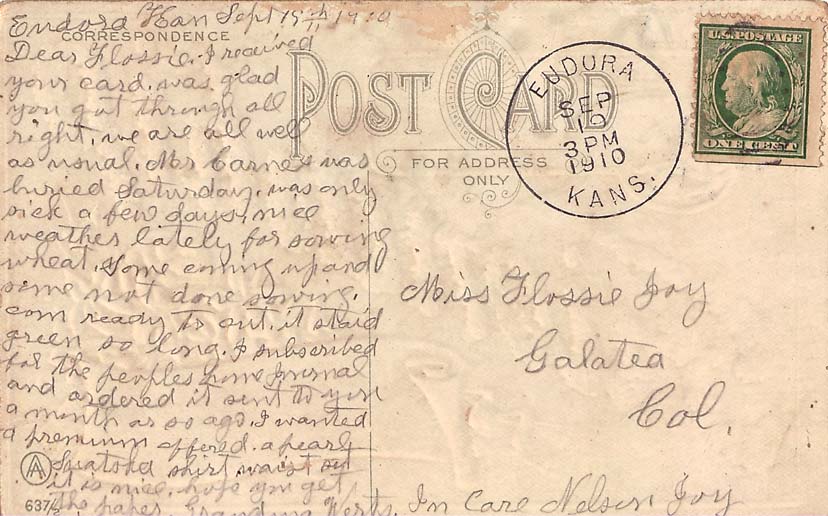 Eudora Kan Sept 19th 1910
CORRESPONDENCE
Dear Flossie. I received
your card. was glad
you got through all
right. we are all well
as usual. Mr Carnes was
buried Saturday. was only
sick a few days. nice
weather lately for sowing
wheat. some coming up and
some not done sowing.
corn ready to cut. it staid
green so long. I subscribed
for the peoples home Journal
and ordered it sent to you
a month or so ago. I wanted
a premium offered. a pearl
shirt waist set
it is nice. hope you get
the paper.
POST CARD
FOR ADDRESS
ONLY
EUDORA
SEP
19
3 PM
1910
KANS.
U.S. POSTAGE
ONE CENT
Miss Flossie Joy
Galatea
Col.
In Care Nelson Joy
AA
637